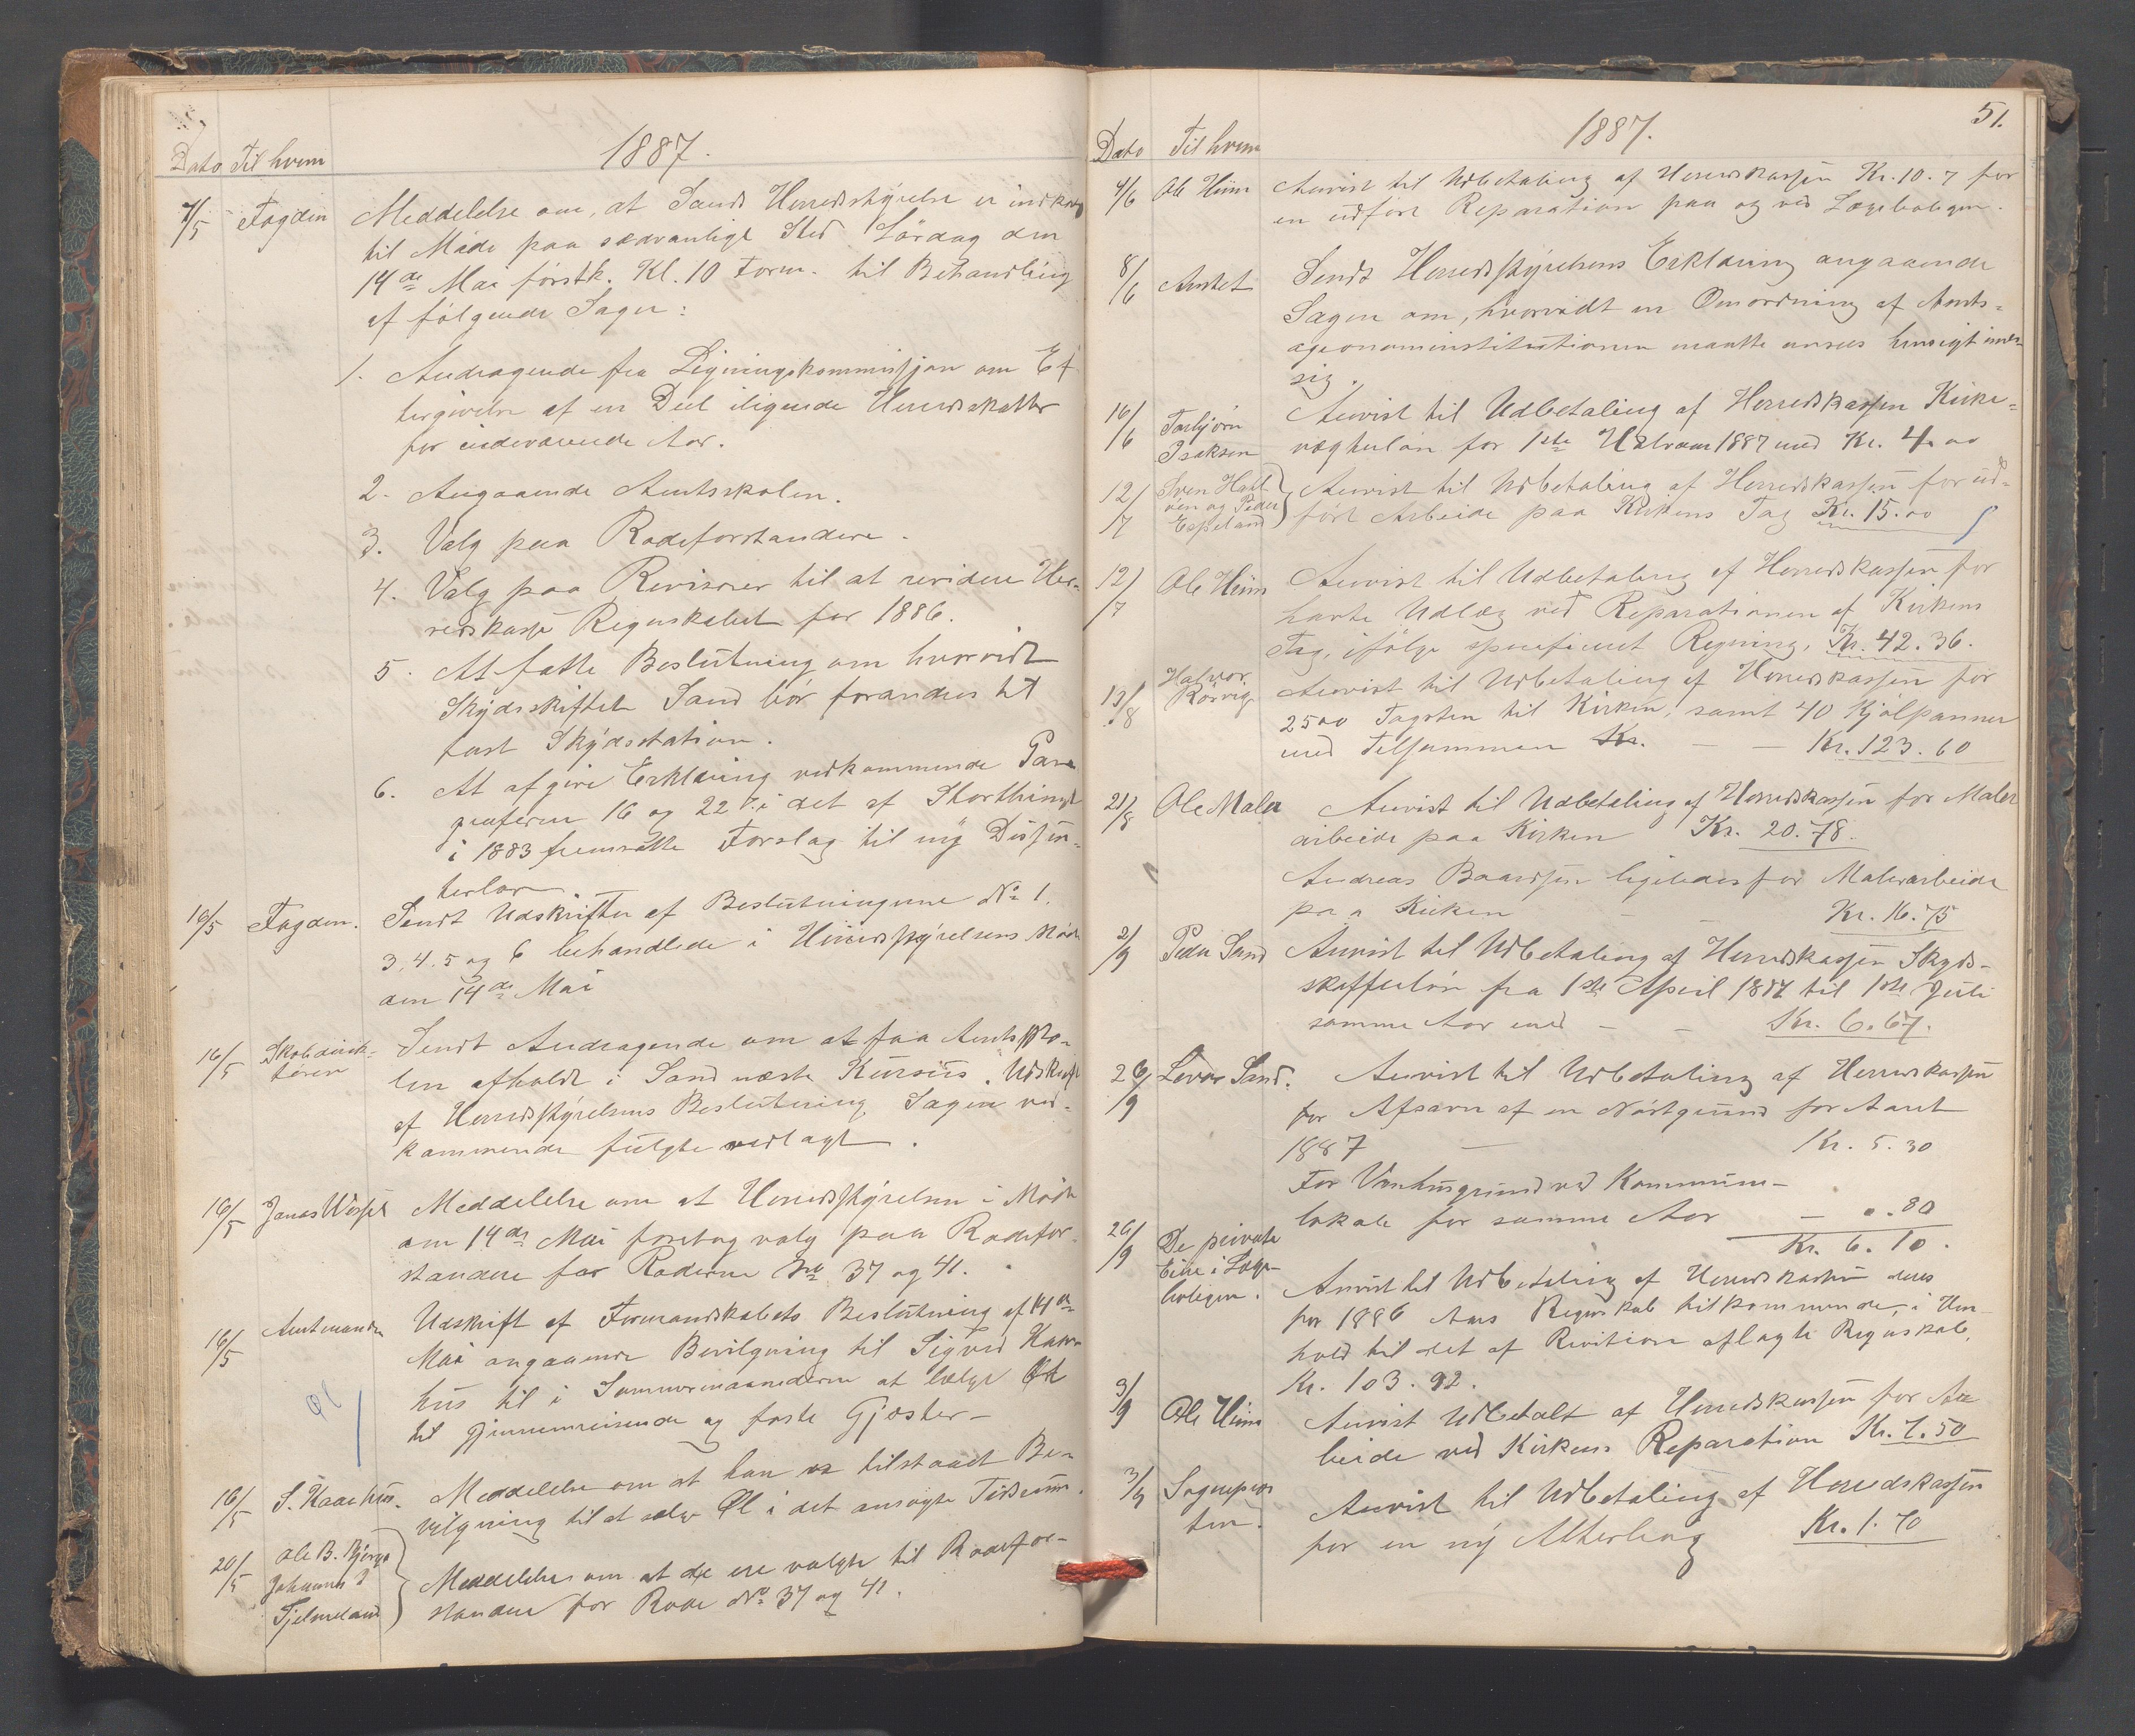 1887.
Dato Til hvem
7/5 Fogden Meddelelse om, at Sands Herredsstyrelse er indkaldt
til Møde paa sædvanligt Sted Lördag den
14de Mai førstk. Kl. 10 Form. til Behandling
af følgende Sager:
1. Andragende fra Ligningskommissjon om Ef-
tergivelse af en Deel iligende Herredsskatter
for indeværende Aar.
2. Angaaende Amtsskolen.
3. Valg paa Rodeforstandere.
4. Valg paa Revisorer til at revidere Her-
redskasse Regnskabet for 1886.
5. At fatte Beslutning om hvorvidt
Skydsskiftet Sand bør forandres til
fast Skydsstation.
6. At afgive Erklæring vedkommende Para-
graferne 16 og 22 i det af Storthinget
i 1883 fremsatte Forslag til ny Dissen-
terlov.
16/5 Fogden. Sendt Udskrifter af Beslutningerne No 1.
3, 4. 5 og 6 behandlede i Herredsstyrelsens Møde
den 14de Mai
16/5 Skoledirek- Sendt Andragende om at faa Amtssko-
tøren len afholdt i Sand næste Kursus. Udskrift
af Herredsstyrelsens Beslutning Sagen ved-
kommende fulgte vedlagt.
16/5 Jonas Meddelelse om at Herredsstyrelsen i Møde
den 14de Mai foretog valg paa Rodefor-
standere for Roderne No 37 og 41.
16/5 Amtmanden Udskrift af Formandskabets Beslutning af 14de
Mai angaaende Bevilgning til Sigvard Kaar-
hus til i Sommermaanederne at sælge Øl
til gjennemreisende og faste Gjæster-
16/5 S. Kaarhus. Meddelelse om at han er tilstaaet Be-
vilgning til at sælge Øl i det ansøgte Tidsrum.
20/5 Ole B.
Johannes Meddelelse om at de ere valgte til Rodefor-
Tjelmeland standere for Rode No 37 og 41.
51.
1887.
Dato Til hvem
4/6 Ole Hiim Anvist til Udbetaling af Herredskassen Kr. 10. 7 for
en udført Reparation paa og ved Lægeboligen.
8/6 Amtet Sendt Herredsstyrelsens Erklæring angaaende
Sagen om, hvorvidt en Omordning af Amts-
agronominstitutionen maatte ansees hensigtmæs-
sig.
16/6 Torbjørn Anvist til Udbetaling af Herredskassen Kirke-
Isaksen for 1ste Halvaar 1887 med Kr. 4.00
12/7 Sven
og Peder Anvist til Udbetaling af Herredskassen for ud-
Espeland ført Arbeide paa Kirkens Tag Kr. 15.00
12/7 Ole Hiim Anvist til Udbetaling af Herredskassen for
havte Udlæg ved Reparationen af Kirkens
Tag, ifølge specificeret Regning, Kr. 42.36.
13/8 Halvor
Rørvig Anvist til Udbetaling af Herredskassen for
2500 Tagsten til Kirken, samt 40 Kjölpanner
med Tilsammen Kr. - - Kr. 123. 60
21/8 Ole Maler Anvist til Udbetaling af Herredskassen for Maler
arbeide paa Kirken Kr. 20. 78.
Andreas Baardsen ligeledes for Malerarbeide
paa Kirken - - Kr. 16. 75
2/9 Peder Sand Anvist til Udbetaling af Herredskassen Skyds-
skafferløn fra 1ste April 1887 til 1ste Juli
samme Aar med - - Kr. 6. 67.
26/9 Sand. Anvist til Udbetaling af Herredskassen
for Afsavn af en Nøstgrund for Aaret
1887 - Kr. 5. 30
For ved Kommune-
lokale for samme Aar - 0. 80
Kr. 6. 10.
26/9 De private
Eiere i Læge- Anvist til Udbetaling af Herredskassen deres
boligen. for 1886 Aars Regnskab tilkommende i Hen-
hold til det af Revition aflagte Regnskab,
Kr. 103. 92.
3/9 Ole Hiim Anvist Udbetalt af Herredskassen for Ar-
beide ved Kirkens Reparation Kr. 7. 50
3/9 Sogneprœs
ten. Anvist til Udbetaling af Herredskassen
for en ny Kr. 1. 70